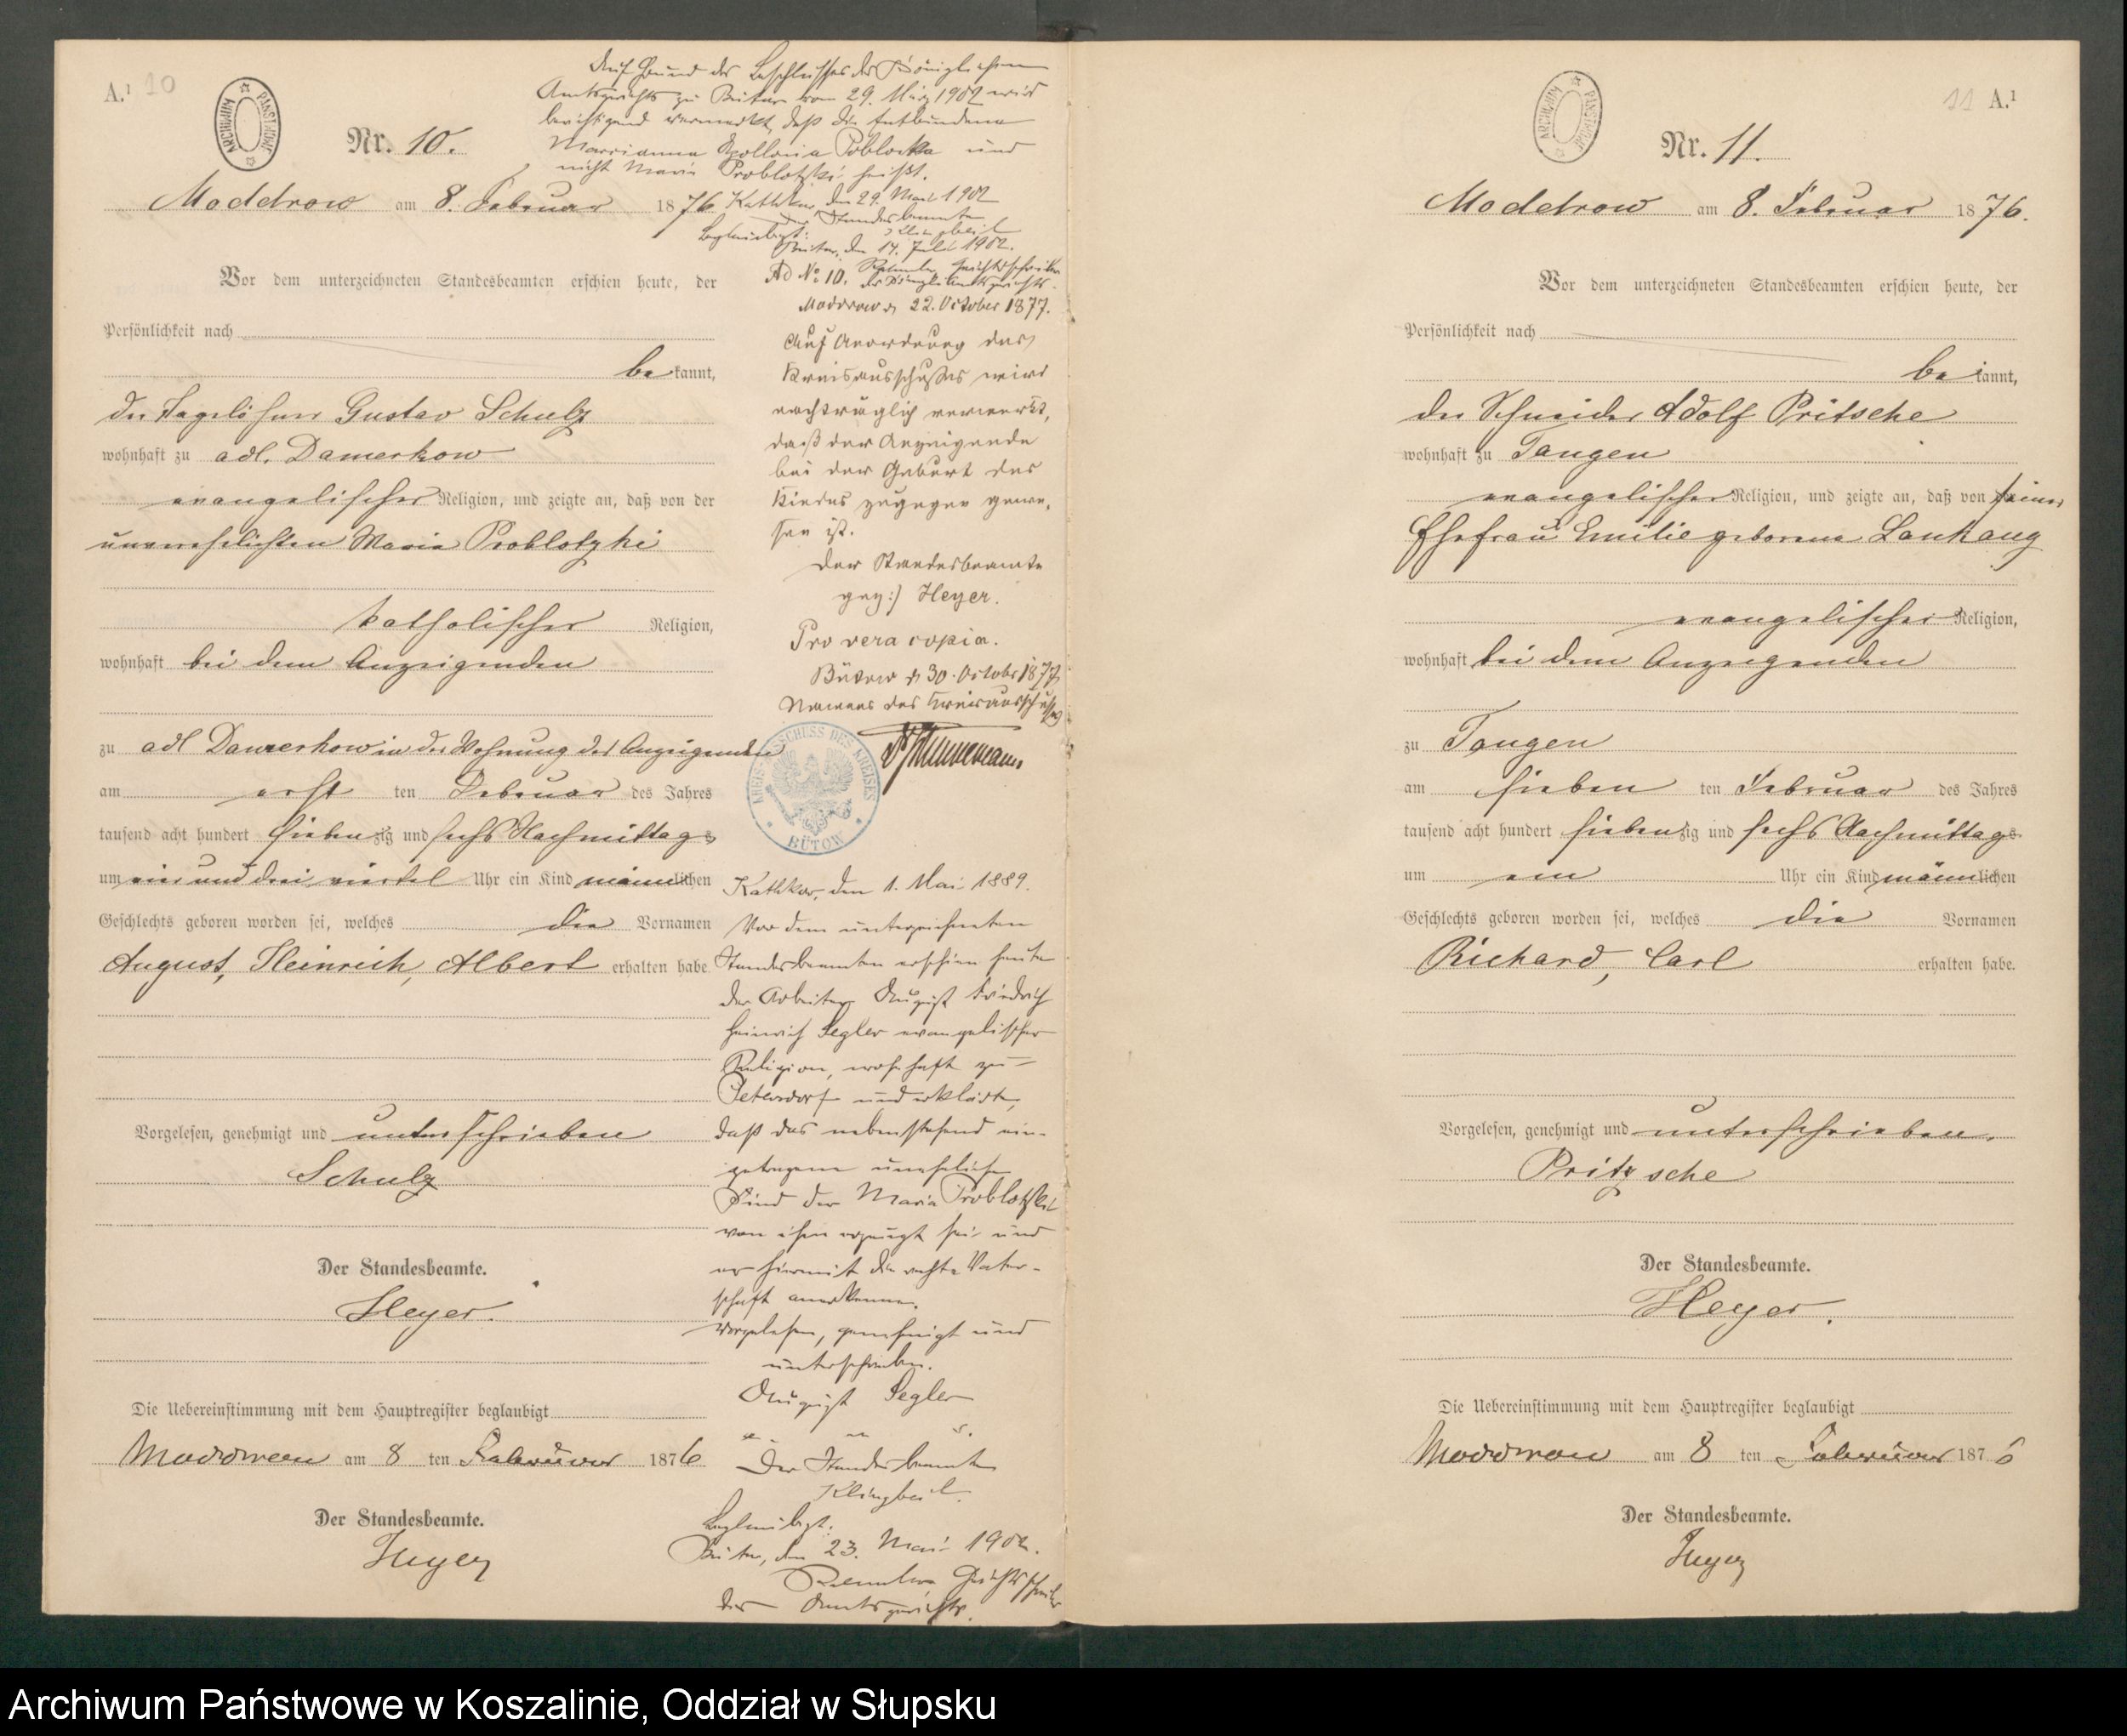 A.¹ 10
ARCHIWUM PAŃSTWOWE
Nr. 10.
Moddrow am 8. Februar 1876
Vor dem unterzeichneten Standesbeamten erschien heute, der
Persönlichkeit nach
bekannt,
der Tagelöhner Gustav Schulz
wohnhaft zu adl. Damerkow
evangelischer Religion, und zeigte an, daß von der
unverehelichten Maria Problotzki
katholischer Religion,
wohnhaft bei dem Anzeigenden
zu adl Damerkow in der Wohnung des Anzeigenden
am erst ten Februar des Jahres
tausend acht hundert siebenzig und sechs Nachmittags
um vier und drei viertel Uhr ein Kind männlichen
Geschlechts geboren worden sei, welches die Vornamen
August, Heinrich, Albert erhalten habe.
Vorgelesen, genehmigt und unterschrieben
Schulz
Der Standesbeamte.
Heyer.
Die Uebereinstimmung mit dem Hauptregister beglaubigt
Moddrow am 8 ten Februar 1876
Der Standesbeamte.
Heyer
Auf Grund des Beschlusses des Königlichen
Amtsgerichts zu Bütow vom 29. März 1902 wird
berichtigend vermerkt, daß die Entbundene
Marrianna Apollonia Poblocka und
nicht Maria Problotzki heißt.
Kathkow, den 29. Mai 1902
Der Standesbeamte
Klingbeil
Beglaubigt:
Bütow, den 14. Juli 1902.
Gerichtsschreiber
des Königl. Amtsgerichts.
Ad No. 10.
Moddrow d. 22. October 1877.
Auf Anordnung des
Kreisausschusses wird
nachträglich vermerkt,
daß der Anzeigende
bei der Geburt des
Kindes zugegen gewe-
sen ist.
Der Standesbeamte
gez:) Heyer.
Pro vera copia.
Bütow d. 30. October 1877.
Namens des Kreisausschusses
KREIS-AUSSCHUSS DES KREISES BÜTOW
Kathkow, den 1. Mai 1889.
Vor dem unterzeichneten
Standesbeamten erschien heute
der Arbeiter August Friedrich
Heinrich Segler evangelischer
Religion, wohnhaft zu
Petersdorf und erklärte,
daß das nebenstehend ein-
getragene uneheliche
Kind der Maria Problotzki
von ihm erzeugt sei und
er hiermit die rechte Vater-
schaft anerkenne.
Vorgelesen, genehmigt und
unterschrieben.
August Segler
Der Standesbeamte
Klingbeil.
Beglaubigt.
Bütow, den 23. Mai 1902.
Gerichtsschreiber
des Amtsgerichts.
11 A.¹
ARCHIWUM PAŃSTWOWE
Nr. 11.
Moddrow am 8. Februar 1876.
Vor dem unterzeichneten Standesbeamten erschien heute, der
Persönlichkeit nach
bekannt,
der Schneider Adolf Pritsche
wohnhaft zu Tangen
evangelischer Religion, und zeigte an, daß von seiner
Ehefrau Emilie geborene Lankaug
evangelischer Religion,
wohnhaft bei dem Anzeigenden
zu Tangen
am sieben ten Februar des Jahres
tausend acht hundert siebenzig und sechs Nachmittags
um ein Uhr ein Kind männlichen
Geschlechts geboren worden sei, welches die Vornamen
Richard, Carl erhalten habe.
Vorgelesen, genehmigt und unterschrieben.
Pritzsche
Der Standesbeamte.
Heyer.
Die Uebereinstimmung mit dem Hauptregister beglaubigt
Moddrow am 8 ten Februar 1876
Der Standesbeamte.
Heyer
Archiwum Państwowe w Koszalinie, Oddział w Słupsku